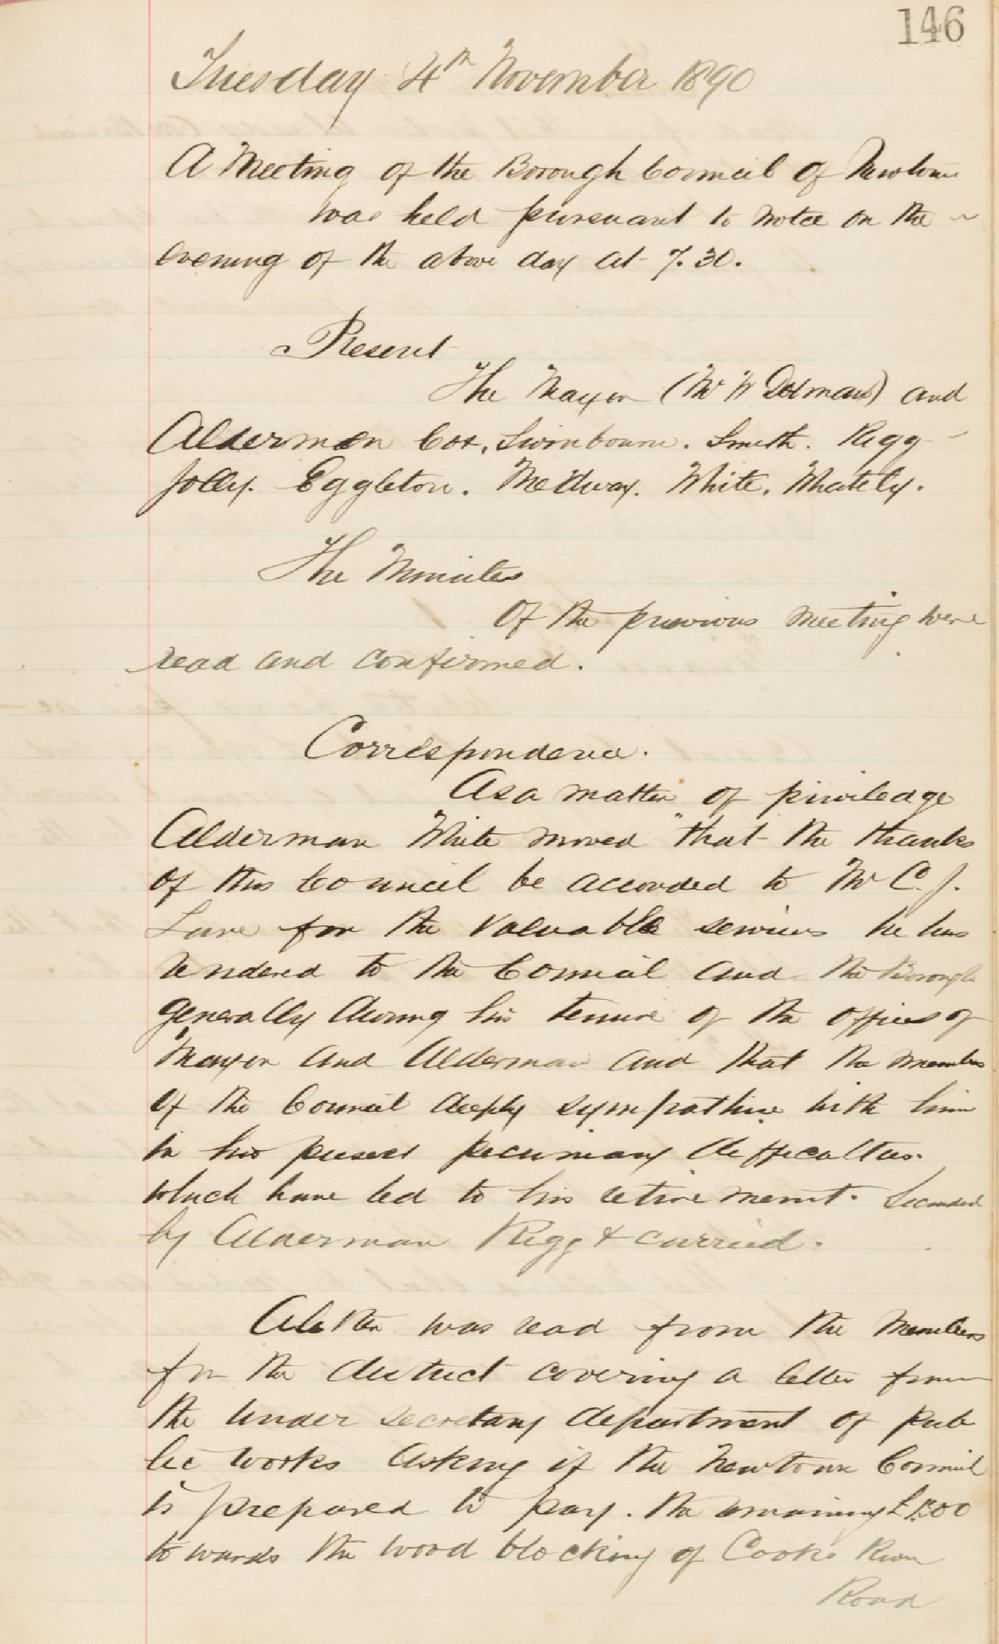 146
Tuesday 4th November 1890
A Meeting of the Borough Council of Newtown
was held pursuant to notice on the
evening of the above day at 7.30.
Present
The Mayor (Mr W Dolmans) and
Aldermen Cox, Swinbourne. Smith. Rigg
Jolly. Eggleton. Methvay. White. Whately.
The Minutes
Of the previous meeting were
read and confirmed.
Correspondence.
As a matter of priviledge
Alderman White moved "that the thanks
of this Council be accorded to Mr C. J.
Lane for the valuable services he has
rendered to the Council and the Borough
generally during his tenure of the offices of
Mayor and Alderman and that the members
of the Council deeply sympathise with him
in his present pecuniary difficulties.
which have led to his retirement. Seconded
by Alderman Rigg & carried.
A letter was read from the Members
for the district covering a letter from
the under secretary department of pub
lic works asking if the Newtown Council
is prepared to pay. the remaining £1500
towards the wood blocking of Cooks River
Road